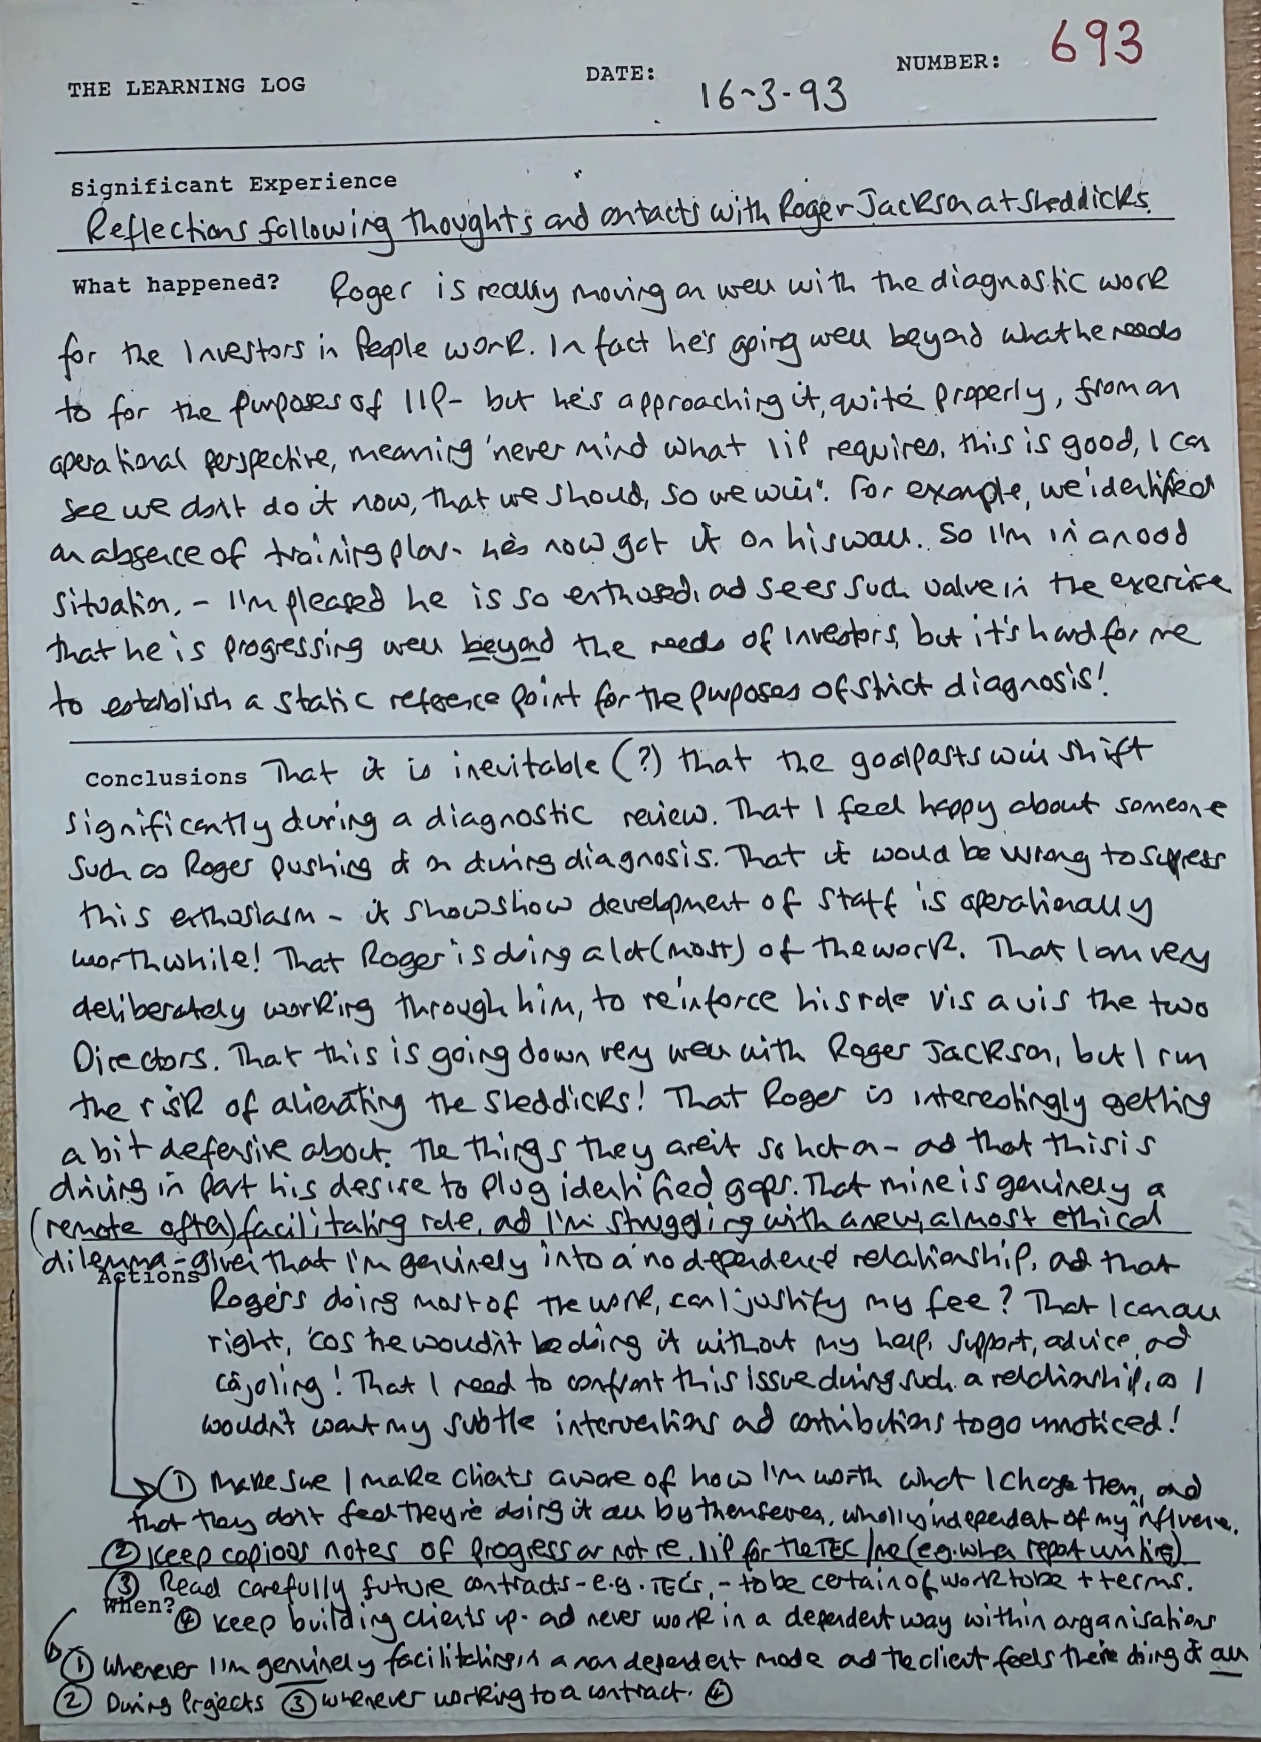 693
THE LEARNING LOG DATE: 16-3-93 NUMBER:
Significant Experience
Reflections following thoughts and contacts with Roger Jackson at Sheddicks.
What happened? Roger is really moving on well with the diagnostic work
for the Investors in People work. In fact he's going well beyond what he needs
to for the purposes of IIP - but he's approaching it, quite properly, from an
operational perspective, meaning 'never mind what IIP requires, this is good, I can
see we don't do it now, that we should, so we will'. For example, we identified
an absence of training plan - he's now got it on his wall. So I'm in a good
situation, - I'm pleased he is so enthused, and sees such value in the exercise
that he is progressing well beyond the needs of Investors, but it's hard for me
to establish a static reference point for the purposes of strict diagnosis!
Conclusions That it is inevitable (?) that the goalposts will shift
significantly during a diagnostic review. That I feel happy about someone
such as Roger pushing it on during diagnosis. That it would be wrong to supress
this enthusiasm - it shows how development of staff is operationally
worthwhile! That Roger is doing a lot (most) of the work. That I am very
deliberately working through him, to reinforce his role vis a vis the two
Directors. That this is going down very well with Roger Jackson, but I run
the risk of alienating the Sheddicks! That Roger is interestingly getting
a bit defensive about the things they aren't so hot on - and that this is
driving in part his desire to plug identified gaps. That mine is genuinely a
(remote often) facilitating role, and I'm struggling with a new, almost ethical
dilemma - given that I'm genuinely into a 'no dependence' relationship, and that
Actions
Roger's doing most of the work, can I justify my fee? That I can all
right, 'cos he wouldn't be doing it without my help, support, advice, and
cajoling! That I need to confront this issue during such a relationship, as I
wouldn't want my subtle interventions and contributions to go unnoticed!
① Make sure I make clients aware of how I'm worth what I charge them, and
that they don't feel they're doing it all by themselves, wholly independent of my influence.
② Keep copious notes of progress or not re. IIP for the TEC/me (e.g. when report writing)
③ Read carefully future contracts - e.g. TECs, - to be certain of work to be + terms.
When?
④ Keep building clients up - and never work in a dependent way within organisations
① Whenever I'm genuinely facilitating in a non dependent mode and the client feels they're doing it all
② During Projects ③ Whenever working to a contract. ④